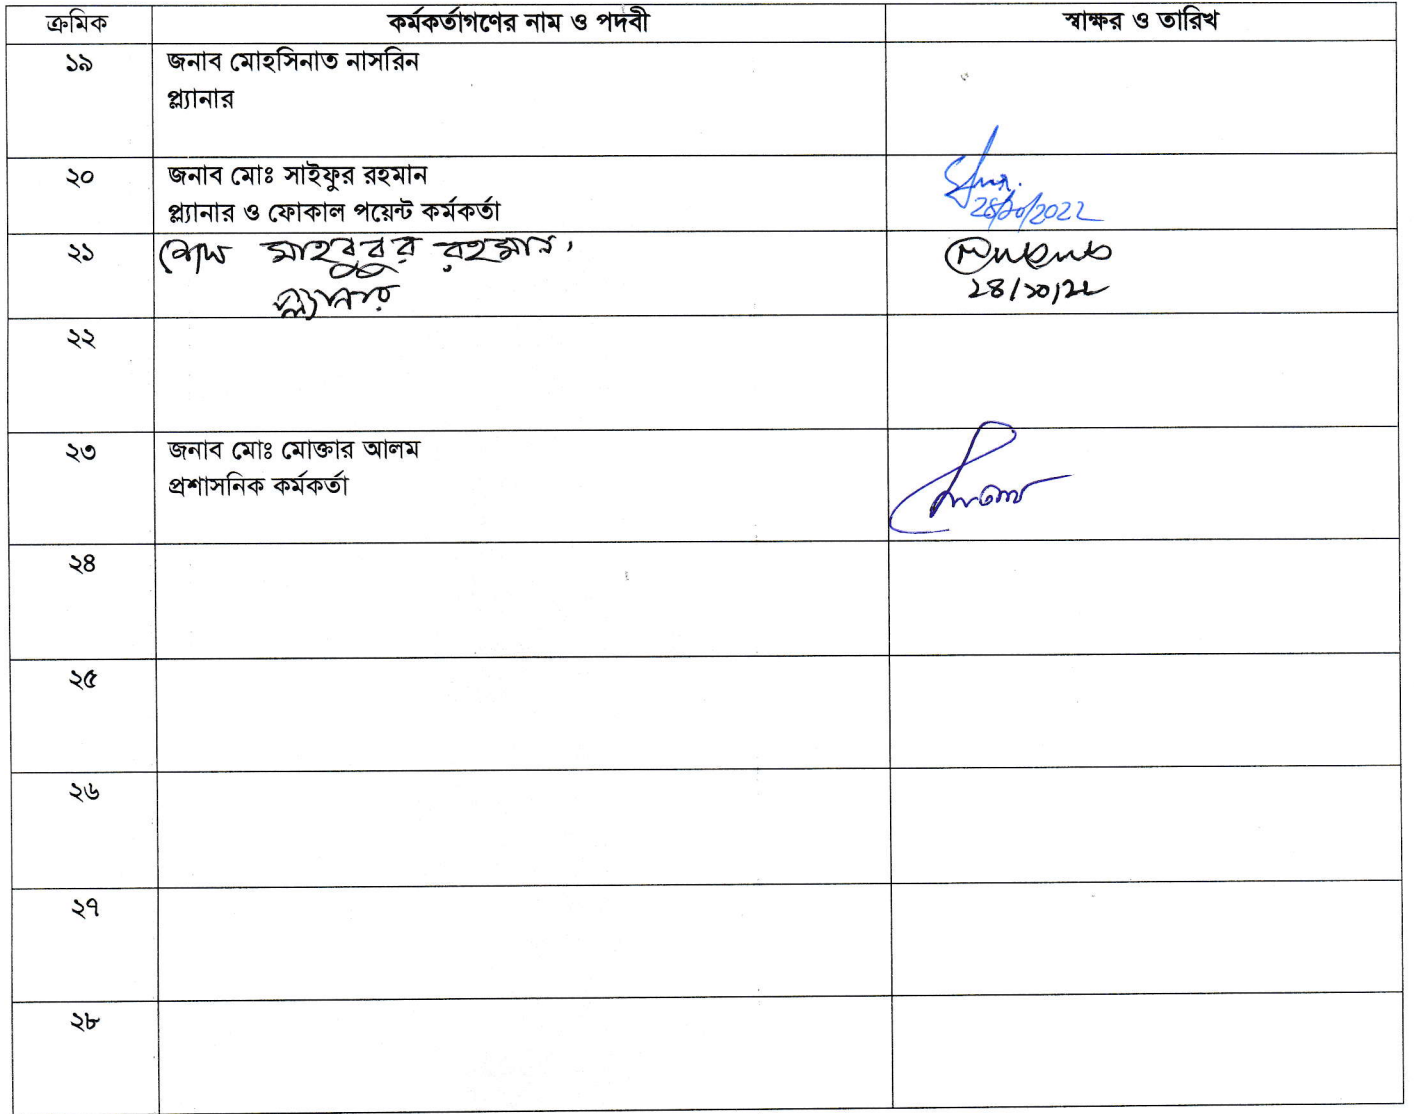 ক্রমিক কর্মকর্তাগণের নাম ও পদবী স্বাক্ষর ও তারিখ
১৯ জনাব মোহসিনাত নাসরিন
প্ল্যানার
২০ জনাব মোঃ সাইফুর রহমান
প্ল্যানার ও ফোকাল পয়েন্ট কর্মকর্তা
২১ মাহবুবুর রহমান,
প্ল্যানার
২২
২৩ জনাব মোঃ মোক্তার আলম
প্রশাসনিক কর্মকর্তা
২৪
২৫
২৬
২৭
২৮